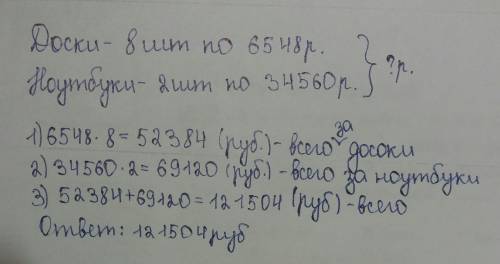 Доски - 8 шт по 6548р. } ?р.
Ноутбуки - 2шт по 34560р.
1) 6548·8 = 52384 (руб.) - всего за досоки
2) 34560·2 = 69120 (руб.) - всего за ноутбуки
3) 52384+69120 = 121504 (руб) - всего
Ответ: 121504руб